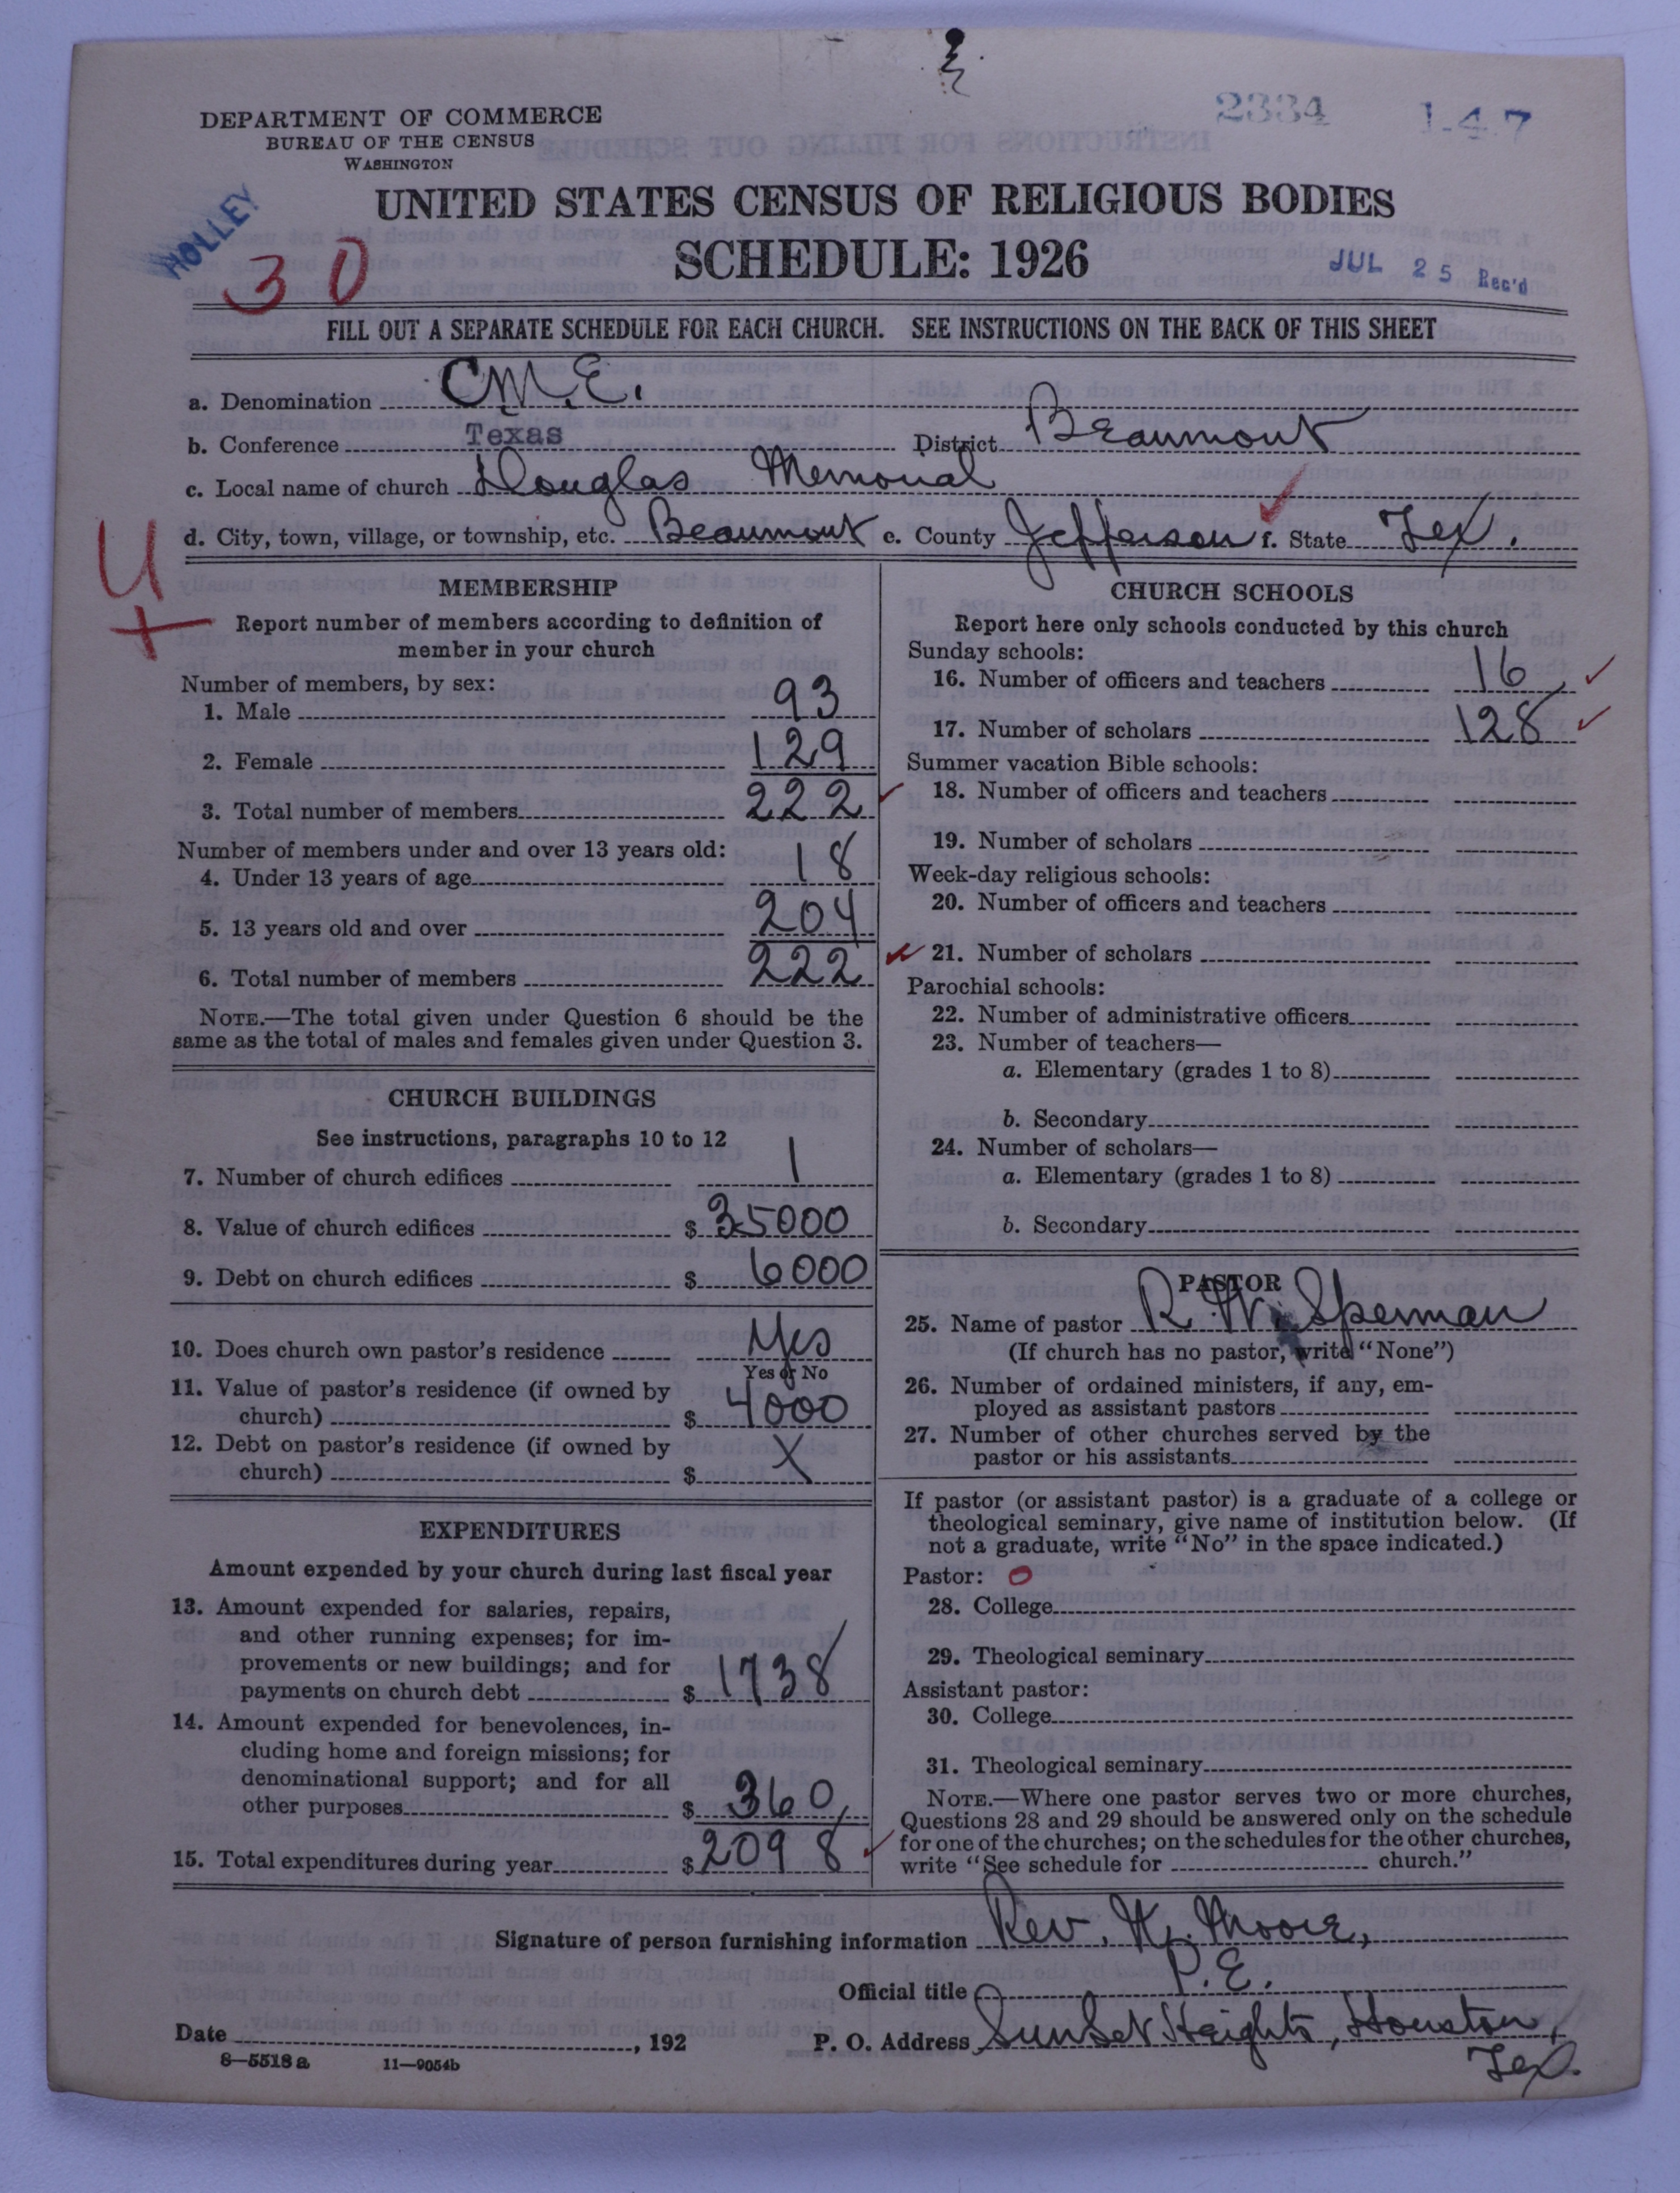 2334 1-47
DEPARTMENT OF COMMERCE
BUREAU OF THE CENSUS
WASHINGTON
HOLLEY
30
UNITED STATES CENSUS OF RELIGIOUS BODIES
SCHEDULE: 1926
JUL 25 Rec'd
FILL OUT A SEPARATE SCHEDULE FOR EACH CHURCH. SEE INSTRUCTIONS ON THE BACK OF THIS SHEET
a. Denomination C.M.E.
b. Conference Texas District Beaumont
c. Local name of church Douglas Memorial
d. City, town, village, or township, etc. Beaumont e. County Jefferson f. State Tex.
U
+
MEMBERSHIP
Report number of members according to definition of
member in your church
Number of members, by sex:
1. Male 93
2. Female 129
3. Total number of members 222
Number of members under and over 13 years old:
4. Under 13 years of age 18
5. 13 years old and over 204
6. Total number of members 222
NOTE.—The total given under Question 6 should be the
same as the total of males and females given under Question 3.
CHURCH BUILDINGS
See instructions, paragraphs 10 to 12
7. Number of church edifices 1
8. Value of church edifices $ 35000
9. Debt on church edifices $ 6000
10. Does church own pastor's residence Yes
Yes or No
11. Value of pastor's residence (if owned by
church) $ 4000
12. Debt on pastor's residence (if owned by
church) $ X
EXPENDITURES
Amount expended by your church during last fiscal year
13. Amount expended for salaries, repairs,
and other running expenses; for im-
provements or new buildings; and for
payments on church debt $ 1738
14. Amount expended for benevolences, in-
cluding home and foreign missions; for
denominational support; and for all
other purposes $ 360
15. Total expenditures during year $ 2098
CHURCH SCHOOLS
Report here only schools conducted by this church
Sunday schools:
16. Number of officers and teachers 16
17. Number of scholars 128
Summer vacation Bible schools:
18. Number of officers and teachers
19. Number of scholars
Week-day religious schools:
20. Number of officers and teachers
21. Number of scholars
Parochial schools:
22. Number of administrative officers
23. Number of teachers—
a. Elementary (grades 1 to 8)
b. Secondary
24. Number of scholars—
a. Elementary (grades 1 to 8)
b. Secondary
PASTOR
25. Name of pastor R. W. Sperman
(If church has no pastor, write "None")
26. Number of ordained ministers, if any, em-
ployed as assistant pastors
27. Number of other churches served by the
pastor or his assistants
If pastor (or assistant pastor) is a graduate of a college or
theological seminary, give name of institution below. (If
not a graduate, write "No" in the space indicated.)
Pastor: O
28. College
29. Theological seminary
Assistant pastor:
30. College
31. Theological seminary
NOTE.—Where one pastor serves two or more churches,
Questions 28 and 29 should be answered only on the schedule
for one of the churches; on the schedules for the other churches,
write "See schedule for church."
Signature of person furnishing information Rev. H. Moore,
Official title P.E.
Date , 192 P. O. Address Sunset Heights, Houston,
Tex.
8—5518 a 11—9054b